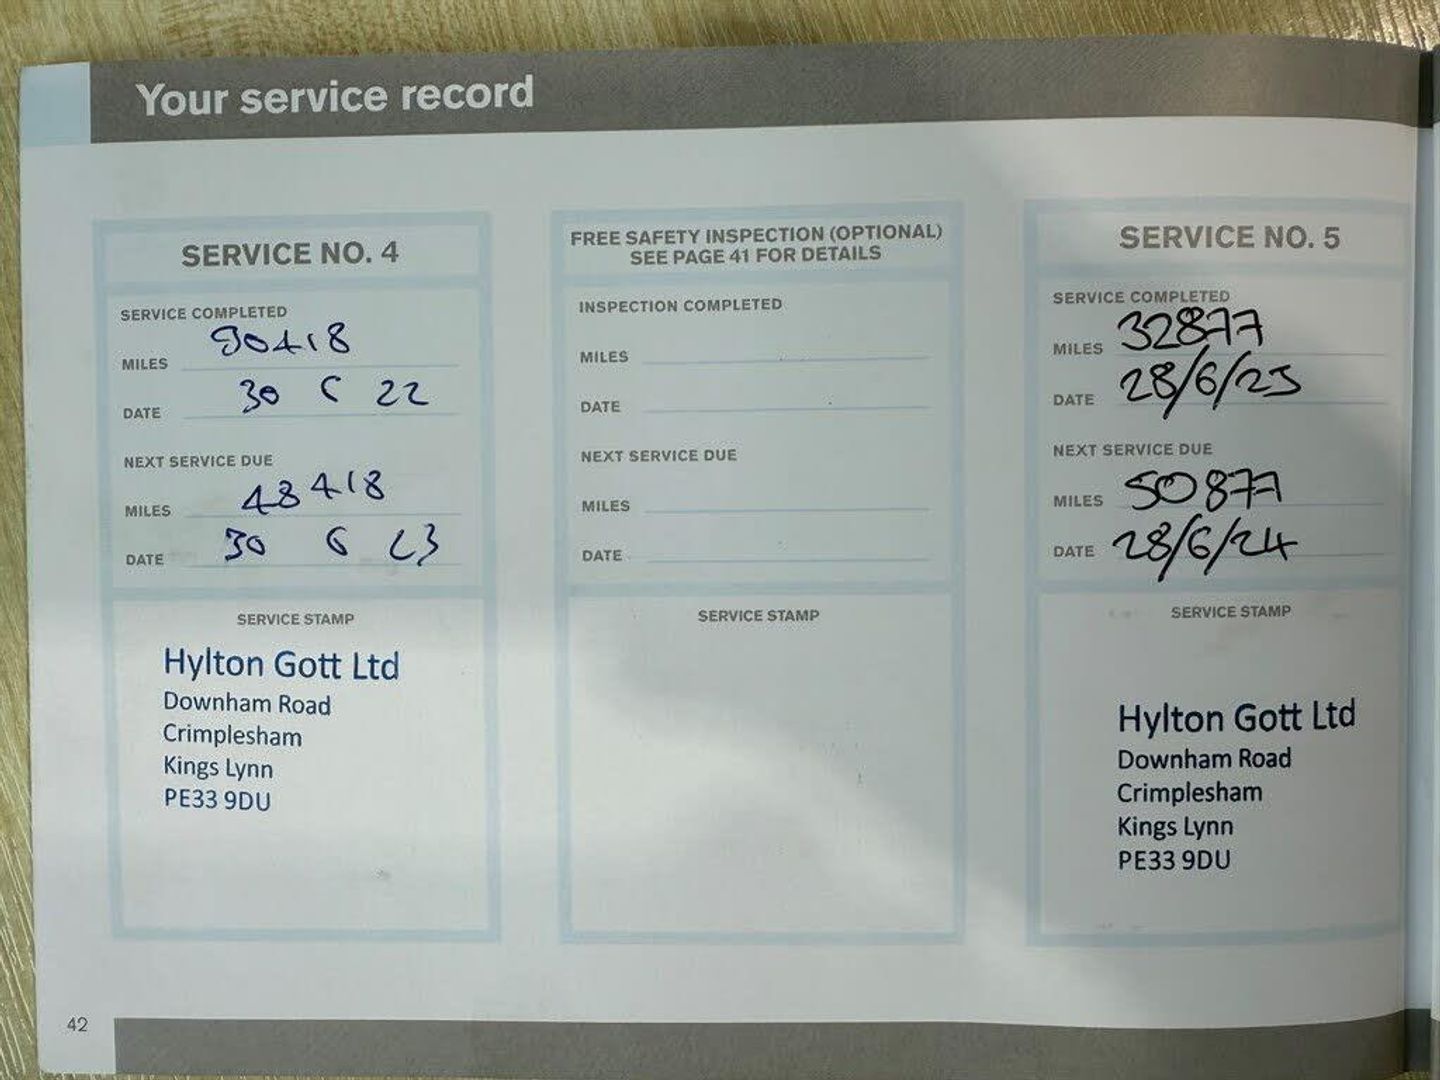 Your service record
SERVICE NO. 4
SERVICE COMPLETED
MILES 30418
DATE 30 6 22
NEXT SERVICE DUE
MILES 48418
DATE 30 6 23
SERVICE STAMP
Hylton Gott Ltd
Downham Road
Crimplesham
Kings Lynn
PE33 9DU
FREE SAFETY INSPECTION (OPTIONAL)
SEE PAGE 41 FOR DETAILS
INSPECTION COMPLETED
MILES
DATE
NEXT SERVICE DUE
MILES
DATE
SERVICE STAMP
SERVICE NO. 5
SERVICE COMPLETED
MILES 32877
DATE 28/6/23
NEXT SERVICE DUE
MILES 50877
DATE 28/6/24
SERVICE STAMP
Hylton Gott Ltd
Downham Road
Crimplesham
Kings Lynn
PE33 9DU
42